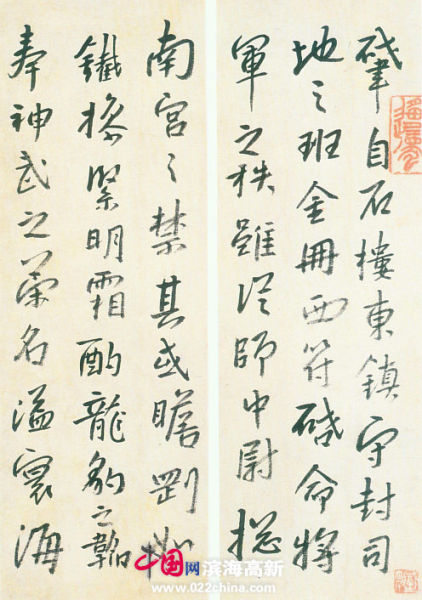 肇自石樓東鎮守封司
地之班金冊西符啓命将
軍之秩雖從師中尉
南宮之禁其或瞻
鐵緊明霜酌龍豹之韜
奉神武之榮名溢寰海
中国网 滨海高新
www.022china.com